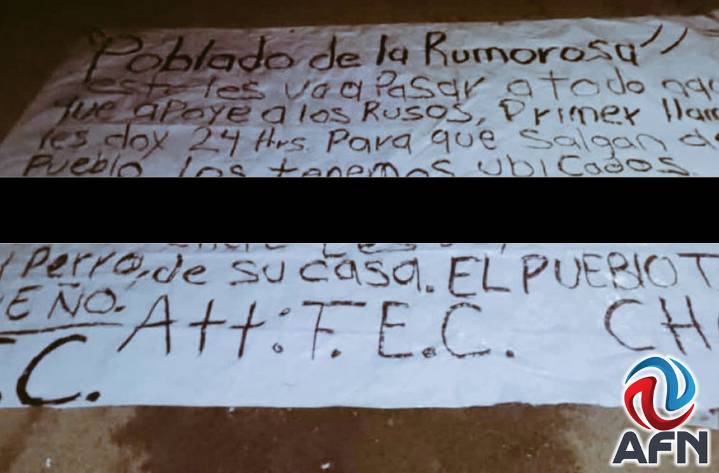 "Poblado de la Rumorosa"
esto les va a Pasar a todo
que apoye a los Rusos, Primer
les doy 24 Hrs. Para que Salgan
Pueblo los tenemos ubicados.
Perro, de su casa. EL PUEBLO T
EÑO. Att: F. E.C. CH
.C.
AFN